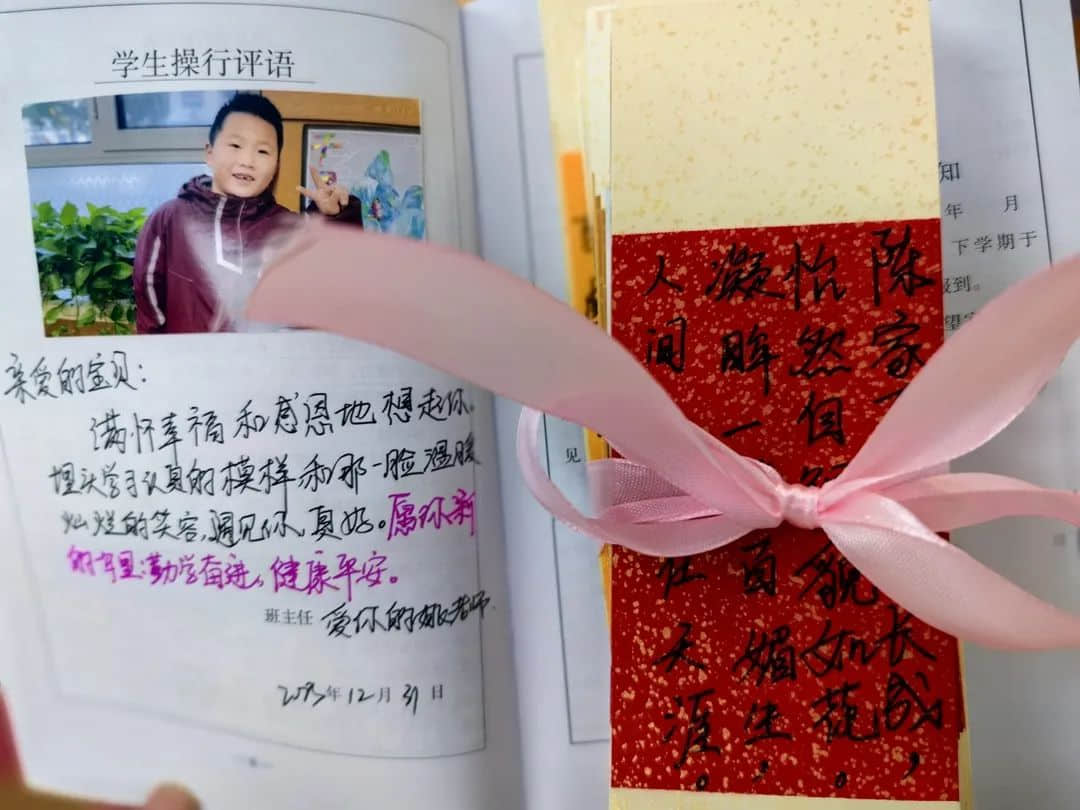 学生操行评语
亲爱的宝贝：
满怀幸福和感恩地想起你。
埋头学习认真的模样和那一脸温暖
灿烂的笑容，遇见你，真好。愿你新
的一年里：勤学奋进，健康平安。
班主任 爱你的姚老师
年12月31日
陈家
长成，
怡然自
貌如花。
凝眸一
百媚生，
人间
在天涯。
知
年 月
下学期于
报到。
见